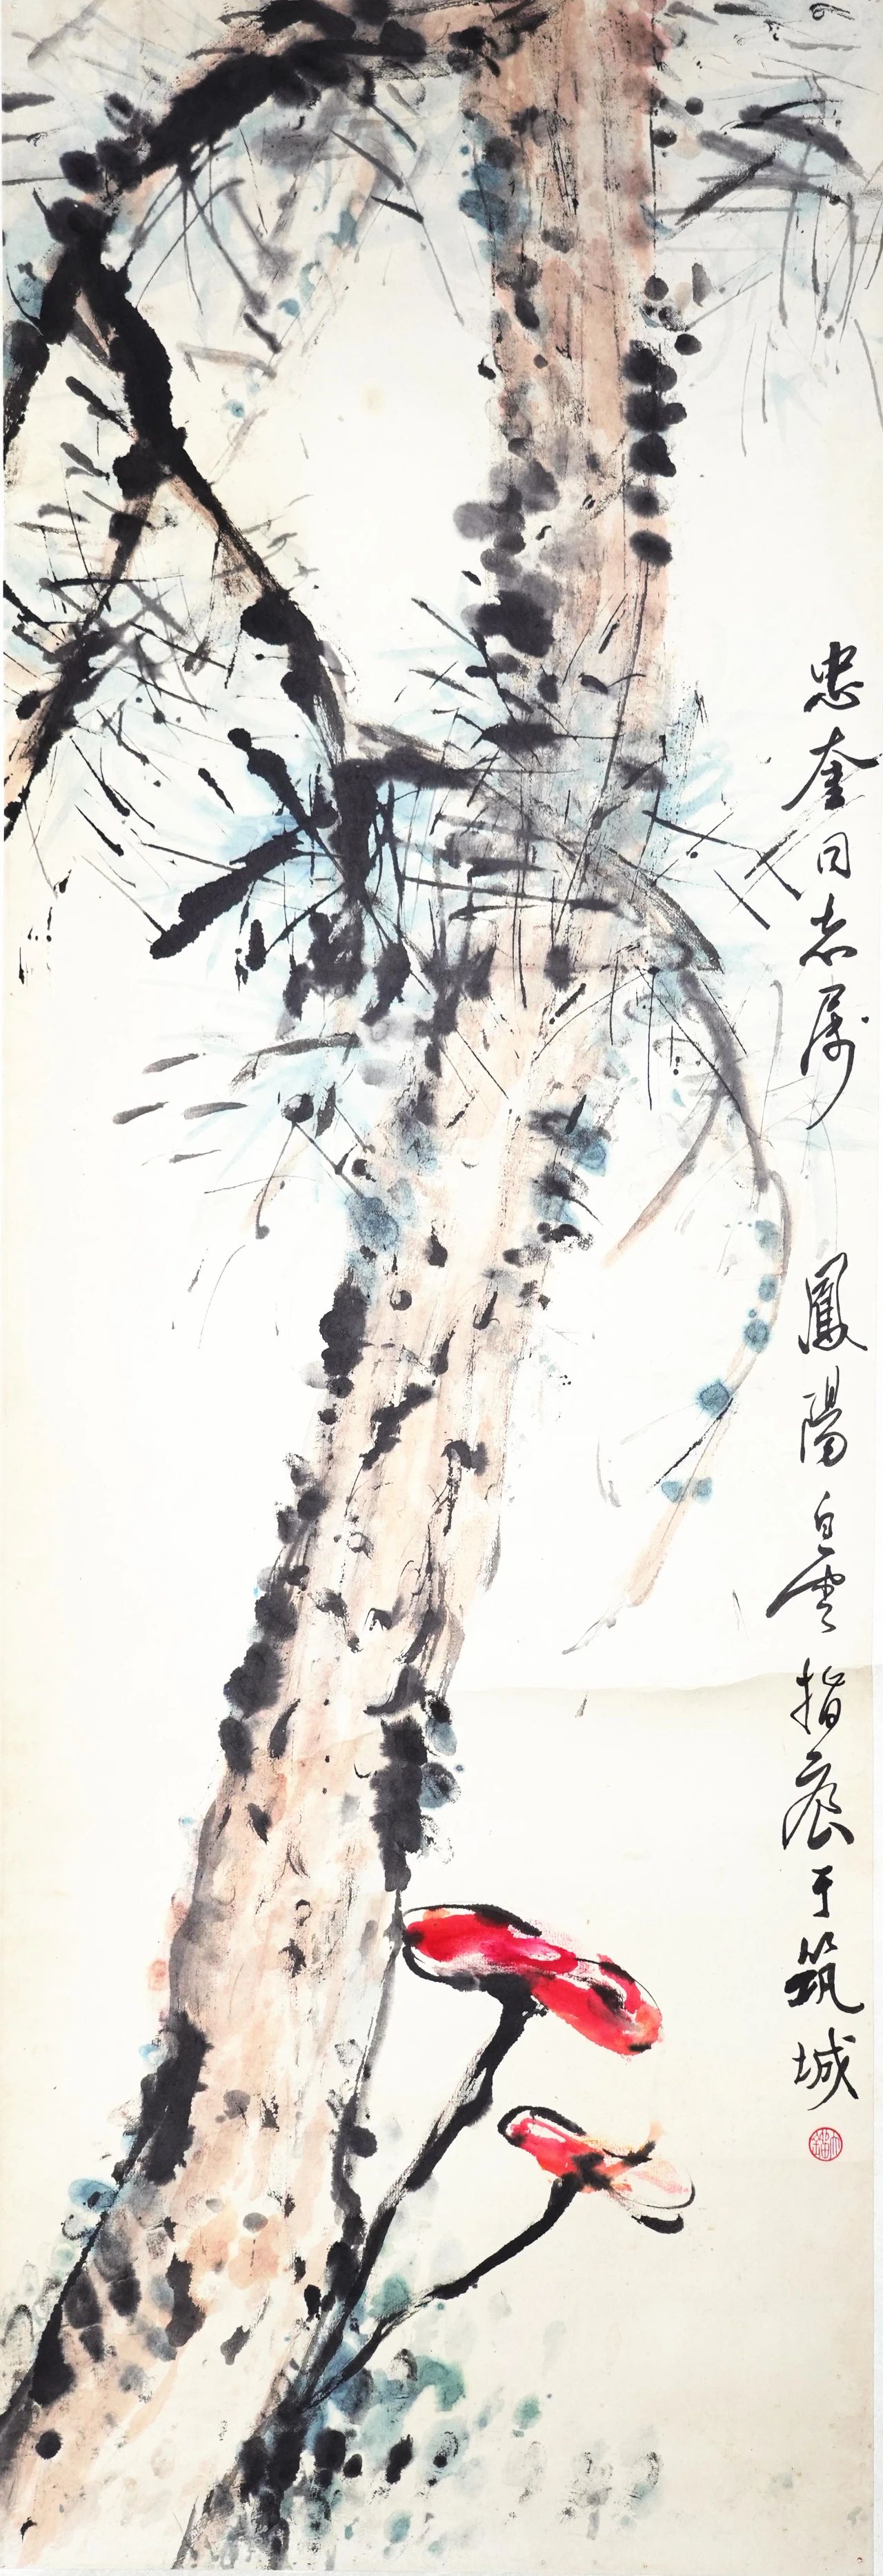 忠奎同志属 鳳陽白雲指痕于筑城